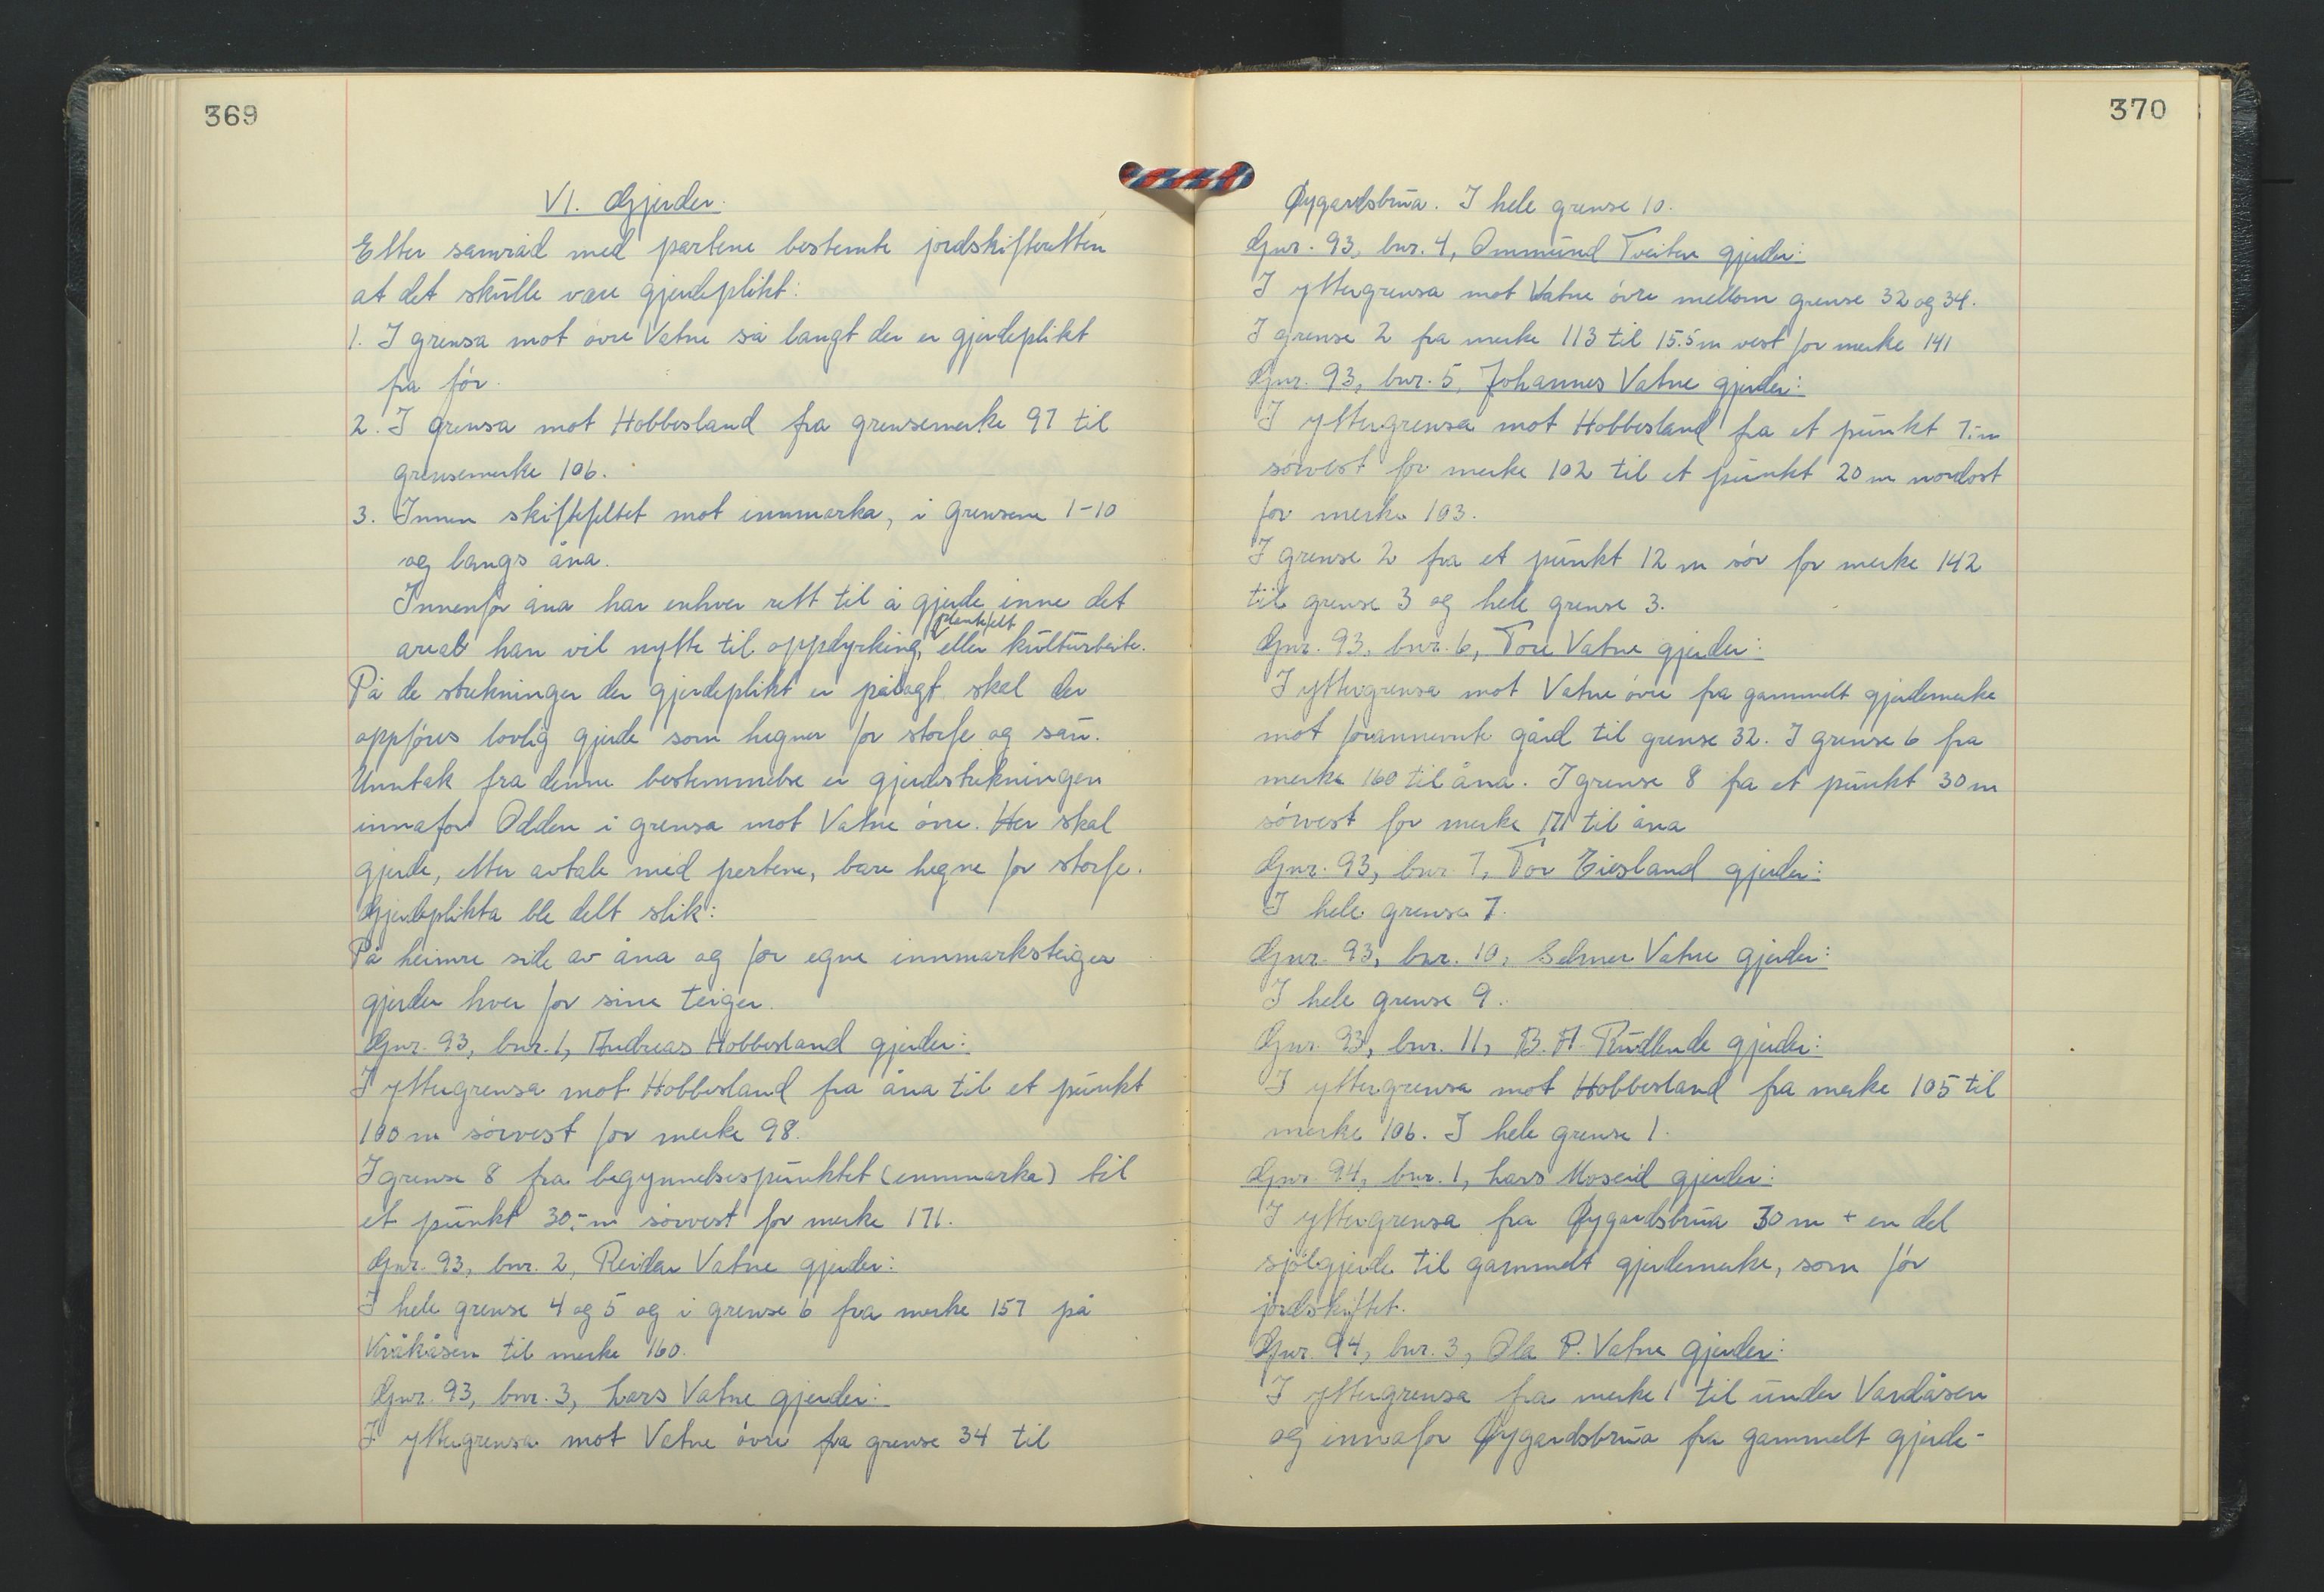 369
VI. Gjerder.
Etter samråd med partene bestemte jordskifteretten
at det skulle være gjerdeplikt:
1. I grensa mot øvre Vatne så langt der er gjerdeplikt
fra før.
2. I grensa mot Hobbesland fra grensemerke 97 til
grensemerke 106.
3. Innen skiftefeltet mot innmarka, i grensene 1-10
og langs åna.
Innenfor åna har enhver rett til å gjerde inne det
plantefelt
areal han vil nytte til oppdyrking, eller kulturbeite.
På de strekninger der gjerdeplikt er pålagt skal der
oppføres lovlig gjerde som hegner for storfe og sau.
Unntak fra denne bestemmelse er gjerdestrekningen
innafor Odden i grensa mot Vatne øvre. Her skal
gjerde, etter avtale med partene, bare hegne for storfe.
Gjerdeplikta ble delt slik:
På heimre side av åna og for egne innmarksteiger
gjerder hver for sine teiger.
Gnr. 93, bnr. 1, Andreas Hobbesland gjerder:
I yttergrensa mot Hobbesland fra åna til et punkt
100 m sørvest for merke 98.
I grense 8 fra begynnelsespunktet (innmarka) til
et punkt 30,- m sørvest for merke 171.
Gnr. 93, bnr. 2, Reidar Vatne gjerder:
I hele grense 4 og 5 og i grense 6 fra merke 157 på
Kråkåsen til merke 160.
Gnr. 93, bnr. 3, Lars Vatne gjerder:
I yttergrensa mot Vatne øvre fra grense 34 til
370
Øygardsbrua. I hele grense 10.
Gnr. 93, bnr. 4, Ommund Tveiten gjerder:
I yttergrensa mot Vatne øvre mellom grense 32 og 34.
I grense 2 fra merke 113 til 15.5 m vest for merke 141
Gnr. 93, bnr. 5, Johannes Vatne gjerder:
I yttergrensa mot Hobbesland fra et punkt 7.- m
sørvest for merke 102 til et punkt 20 m nordost
for merke 103.
I grense 2 fra et punkt 12 m sør for merke 142
til grense 3 og hele grense 3.
Gnr. 93, bnr. 6, Tore Vatne gjerder:
I yttergrensa mot Vatne øvre fra gammelt gjerdemerke
mot forannevnte gård til grense 32. I grense 6 fra
merke 160 til åna. I grense 8 fra et punkt 30 m
sørvest for merke 171 til åna
Gnr. 93, bnr. 7, Tor Eiesland gjerder:
I hele grense 7.
Gnr. 93, bnr. 10, Selmer Vatne gjerder:
I hele grense 9.
Gnr. 93, bnr. 11, B. A. Rudlende gjerder:
I yttergrensa mot Hobbesland fra merke 105 til
merke 106. I hele grense 1.
Gnr. 94, bnr. 1, Lars Moseid gjerder:
I yttergrensa fra Øygardsbrua 30 m + en del
sjølgjerde til gammelt gjerdemerke, som før
jordskiftet.
Gnr. 94, bnr. 3, Ola P. Vatne gjerder:
I yttergrensa fra merke 1 til under Vardåsen
og innafor Øygardsbrua fra gammelt gjerde-